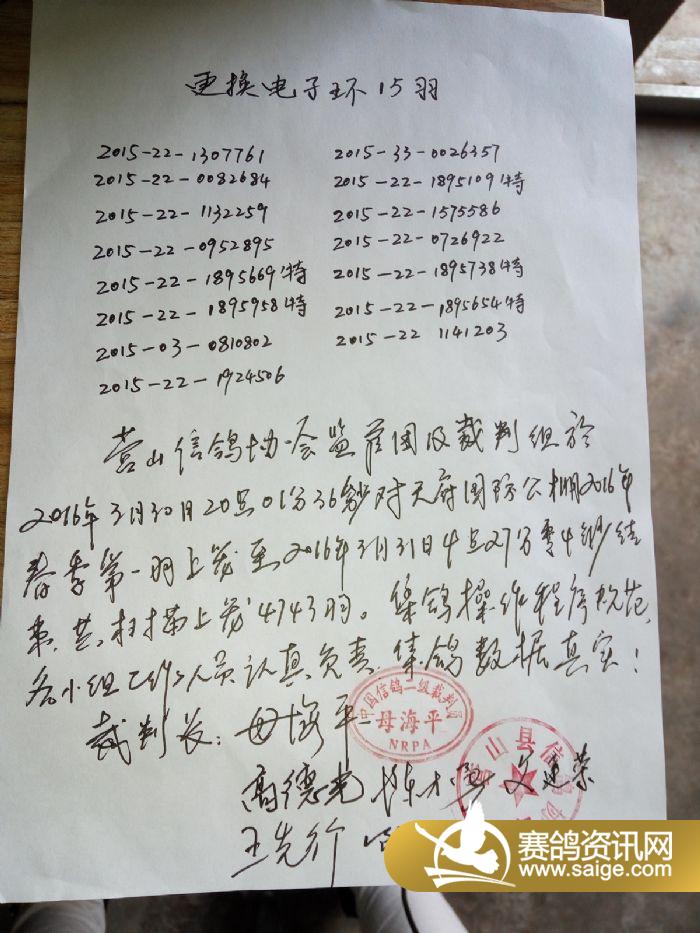 更换电子环15羽
2015-22-1307761 2015-33-0026357
2015-22-0082684 2015-22-1895109特
2015-22-1132259 2015-22-1575586
2015-22-0952895 2015-22-0726922
2015-22-1895669特 2015-22-1895738特
2015-22-1895958特 2015-22-1895654特
2015-03-0810802 2015-22 1141203
2015-22-1924506
营山信鸽协会监督团及裁判组於
2016年3月30日20点01分36秒对天府国际公棚2016年
春季第一羽上笼至2016年3月31日4点27分零4秒结
束,共扫描上笼4743羽。集鸽操作程序规范,
各小组工作人员认真负责,集鸽数据真实!
裁判长:母海平
中国信鸽二级裁判员
母海平
NRPA
山县信鸽协
高德 文建荣
王先行
赛鸽资讯网
www.saige.com